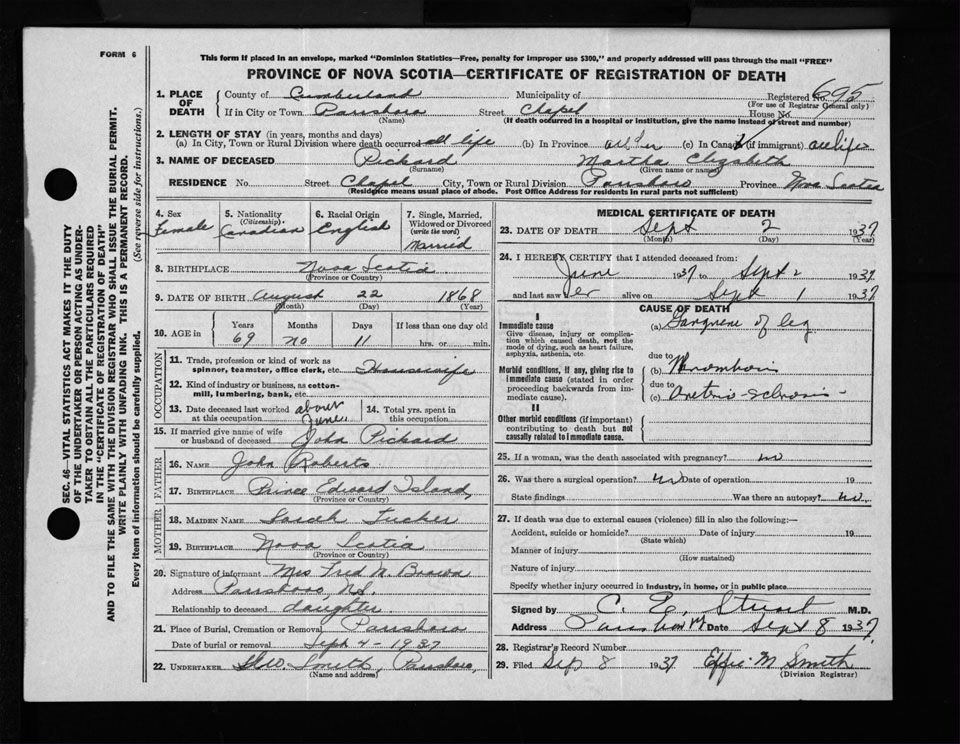 FORM 6
This form if placed in an envelope, marked "Dominion Statistics—Free, penalty for improper use $300," and properly addressed will pass through the mail "FREE"
PROVINCE OF NOVA SCOTIA—CERTIFICATE OF REGISTRATION OF DEATH
SEC. 46—VITAL STATISTICS ACT MAKES IT THE DUTY
OF THE UNDERTAKER OR PERSON ACTING AS UNDER-
TAKER TO OBTAIN ALL THE PARTICULARS REQUIRED
IN THE "CERTIFICATE OF REGISTRATION OF DEATH"
AND TO FILE THE SAME WITH THE DIVISION REGISTRAR WHO SHALL ISSUE THE BURIAL PERMIT.
WRITE PLAINLY WITH UNFADING INK. THIS IS A PERMANENT RECORD.
Every item of information should be carefully supplied. (See reverse side for instructions.)
1. PLACE OF DEATH County of Cumberland Municipality of Registered No. 695
(For use of Registrar General only)
If in City or Town Parrsboro Street Chapel House No.
(Name) (If death occurred in a hospital or institution, give the name instead of street and number)
2. LENGTH OF STAY (in years, months and days)
(a) In City, Town or Rural Division where death occurred all life (b) In Province (c) In Canada (if immigrant) all life
3. NAME OF DECEASED Pickard Martha Elizabeth
(Surname) (Given name or names)
RESIDENCE No. Street Chapel City, Town or Rural Division Parrsboro Province Nova Scotia
(Residence means usual place of abode. Post Office Address for residents in rural parts not sufficient)
4. Sex Female
5. Nationality (Citizenship) Canadian
6. Racial Origin English
7. Single, Married, Widowed or Divorced (write the word) Married
8. BIRTHPLACE Nova Scotia
(Province or Country)
9. DATE OF BIRTH August 22 1868
(Month) (Day) (Year)
10. AGE in Years 69 Months no Days 11 If less than one day old hrs. or min.
OCCUPATION
11. Trade, profession or kind of work as spinner, teamster, office clerk, etc. Housewife
12. Kind of industry or business, as cotton-mill, lumbering, bank, etc.
13. Date deceased last worked at this occupation about June
14. Total yrs. spent in this occupation
15. If married give name of wife or husband of deceased John Pickard
FATHER
16. NAME John Roberts
17. BIRTHPLACE Prince Edward Island
(Province or Country)
MOTHER
18. MAIDEN NAME Sarah Tucker
19. BIRTHPLACE Nova Scotia
(Province or Country)
20. Signature of informant Mrs Fred N. Brown
Address Parrsboro N.S.
Relationship to deceased daughter
21. Place of Burial, Cremation or Removal Parrsboro
Date of burial or removal Sept 4 - 1937
22. UNDERTAKER Smith, Parrsboro,
(Name and address)
MEDICAL CERTIFICATE OF DEATH
23. DATE OF DEATH Sept 2 1937
(Month) (Day) (Year)
24. I HEREBY CERTIFY that I attended deceased from:
June 1937 to Sept 2 1937
and last saw er alive on Sept 1 1937
CAUSE OF DEATH
I
Immediate cause
Give disease, injury or complication which caused death, not the mode of dying, such as heart failure, asphyxia, asthenia, etc.
(a) Gangrene of leg
due to
Morbid conditions, if any, giving rise to immediate cause (stated in order proceeding backwards from immediate cause).
(b) Thrombosis
due to
(c) Arterio-sclerosis
II
Other morbid conditions (if important) contributing to death but not causally related to immediate cause.
25. If a woman, was the death associated with pregnancy? no
26. Was there a surgical operation? no Date of operation 19
State findings Was there an autopsy? no.
27. If death was due to external causes (violence) fill in also the following:—
Accident, suicide or homicide? Date of injury 19
(State which)
Manner of injury
(How sustained)
Nature of injury
Specify whether injury occurred in industry, in home, or in public place
Signed by C. E. Stuart M.D.
Address Parrsboro NS Date Sept 8 1937
28. Registrar's Record Number
29. Filed Sep 8 1937 Effie M Smith
(Division Registrar)